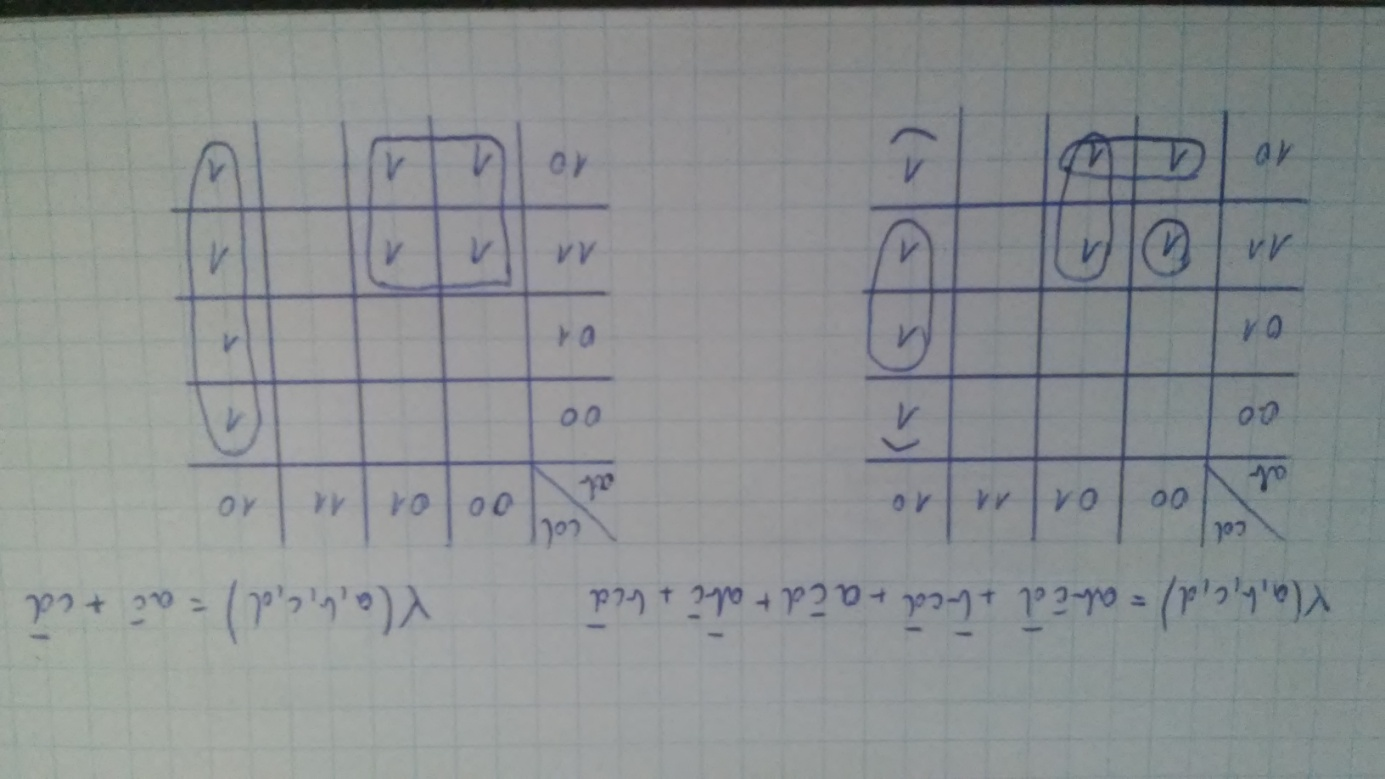 Y(a,b,c,d) = abc̄d̄ + b̄cd̄ + ac̄d + ab̄c̄ + bcd̄
cd
ab 00 01 11 10
00 1
01 1
11 1 1 1
10 1 1 1
Y(a,b,c,d) = ac̄ + cd̄
cd
ab 00 01 11 10
00 1
01 1
11 1 1 1
10 1 1 1